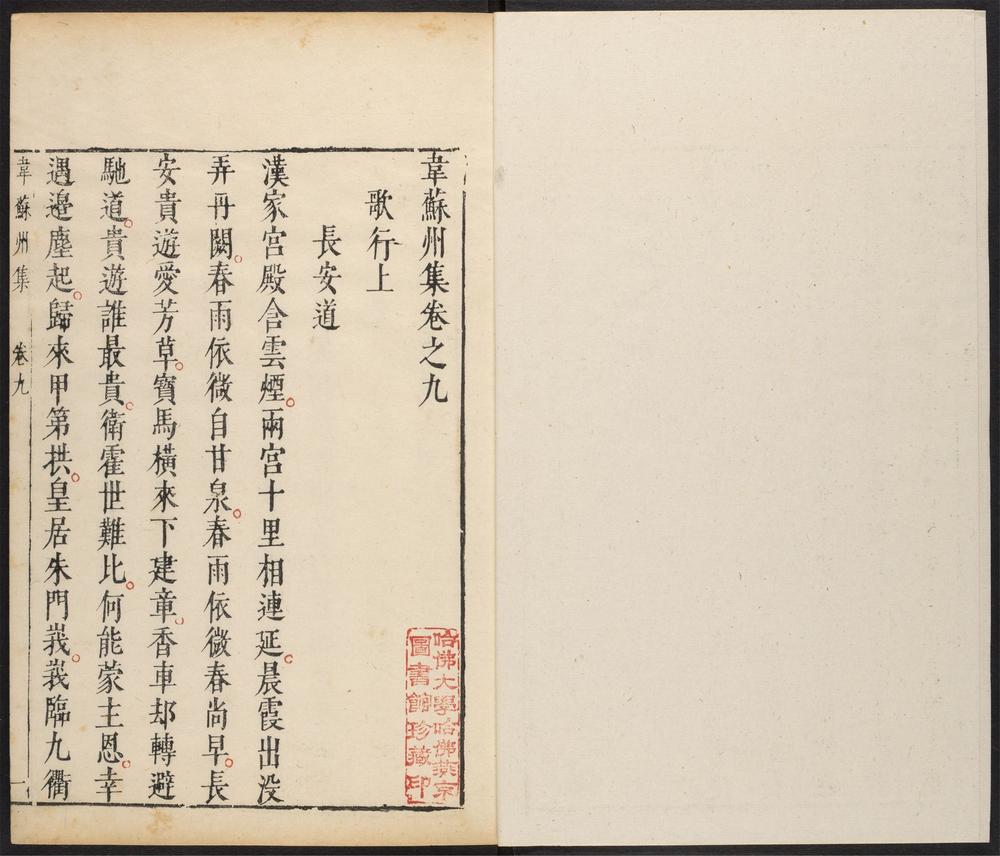 韋蘇州集卷之九
歌行上
長安道
漢家宮殿含雲煙兩宮十里相連延晨霞出没
弄丹闕春雨依微自甘泉春雨依微春尚早長
安貴遊愛芳草寶馬橫來下建章香車却轉避
馳道貴遊誰最貴衛霍世難比何能蒙主恩幸
遇邊塵起歸來甲第拱皇居朱門峩峩臨九衢
韋蘇州集 卷九 一
哈佛大學哈佛燕京
圖書館珍藏印